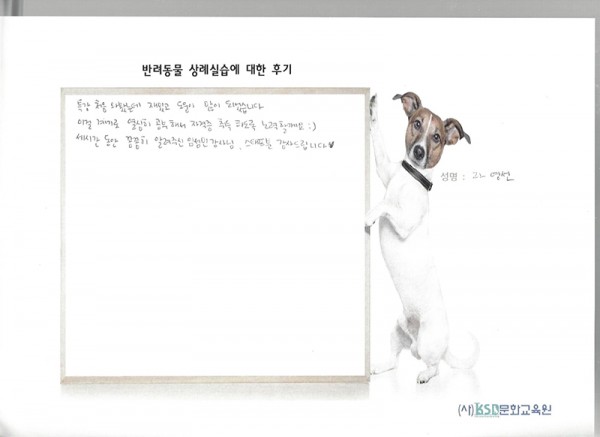 반려동물 상례실습에 대한 후기
특강 처음 와봤는데 재밌고 도움이 많이 되었습니다
이걸 계기로 열심히 공부해서 자격증 취득 하도록 노력할게요 :)
세시간 동안 꼼꼼히 알려주신 강사님, 스태프분 감사드립니다♥
성명 : 고영선
(사)KSD문화교육원